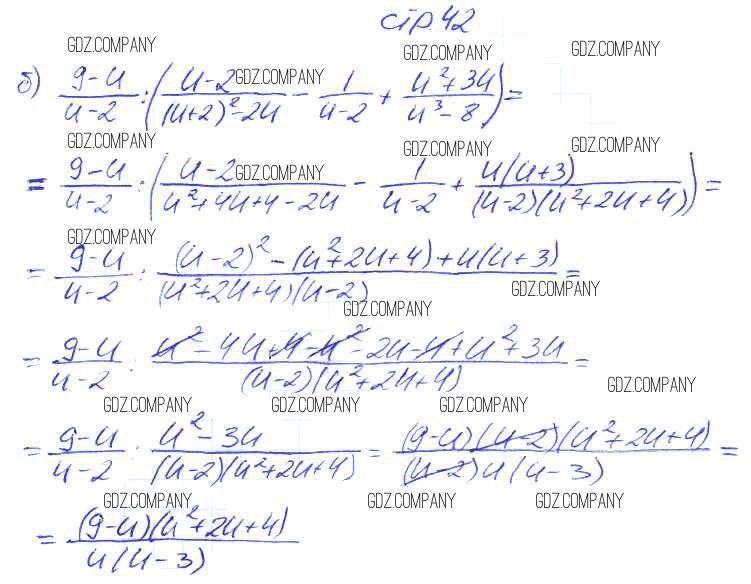 стр. 42
GDZ.COMPANY GDZ.COMPANY GDZ.COMPANY
б) (9-u)/(u-2) : ((u-2)/((u+2)²-2u) - 1/(u-2) + (u²+3u)/(u³-8)) =
GDZ.COMPANY
GDZ.COMPANY GDZ.COMPANY GDZ.COMPANY
= (9-u)/(u-2) : ((u-2)/(u²+4u+4-2u) - 1/(u-2) + u(u+3)/((u-2)(u²+2u+4))) =
GDZ.COMPANY
GDZ.COMPANY
= (9-u)/(u-2) : ((u-2)²-(u²+2u+4)+u(u+3))/((u²+2u+4)(u-2)) =
GDZ.COMPANY
GDZ.COMPANY
= (9-u)/(u-2) : (u²-4u+4-u²-2u-4+u²+3u)/((u-2)(u²+2u+4)) =
GDZ.COMPANY
GDZ.COMPANY GDZ.COMPANY GDZ.COMPANY
= (9-u)/(u-2) : (u²-3u)/((u-2)(u²+2u+4)) = (9-u)(u-2)(u²+2u+4)/((u-2)u(u-3)) =
GDZ.COMPANY GDZ.COMPANY GDZ.COMPANY
= (9-u)(u²+2u+4)/(u(u-3))